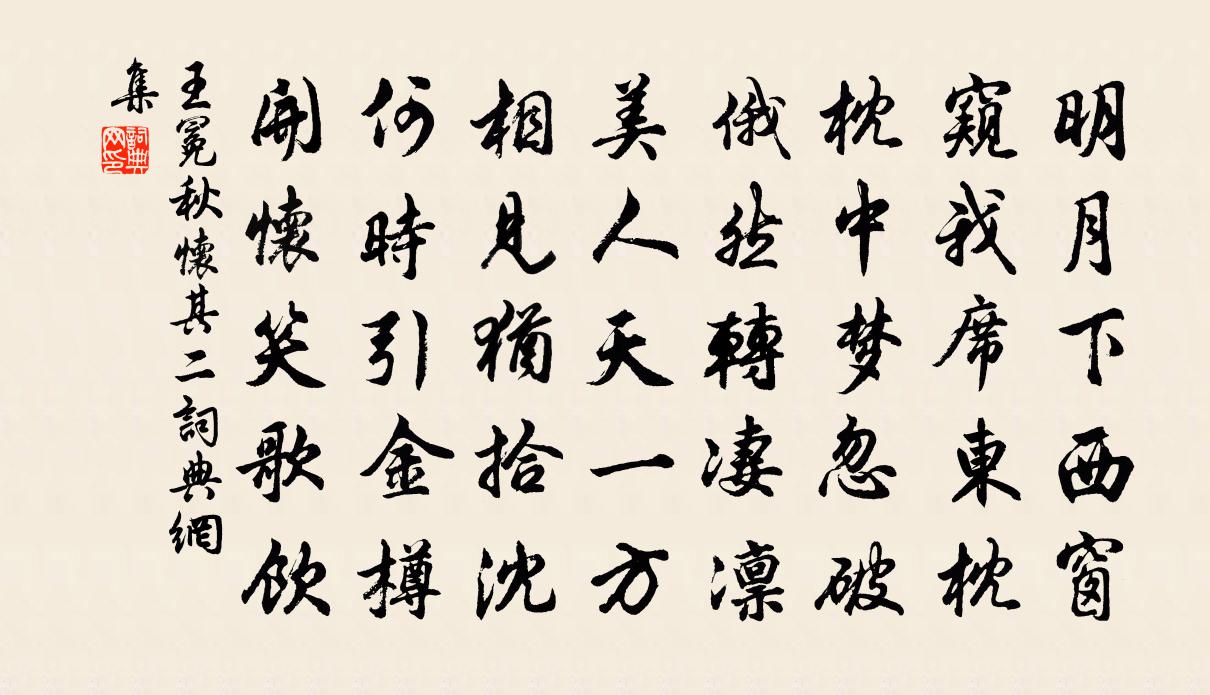 明月下西窗
窺我席東枕
枕中梦忽破
俄然轉凄凛
美人天一方
相見猶拾沈
何時引金樽
開懷笑歌飲
王冕秋懷其二詞典網
集
詞典网印